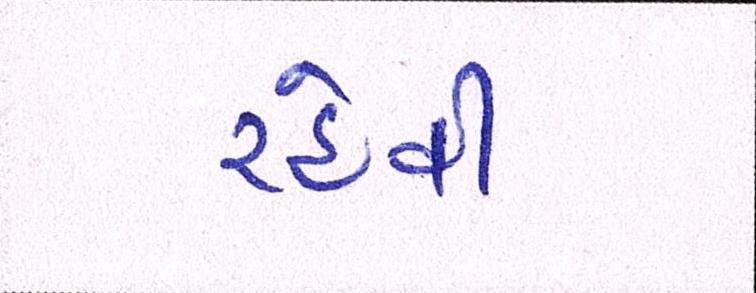 રહેવી